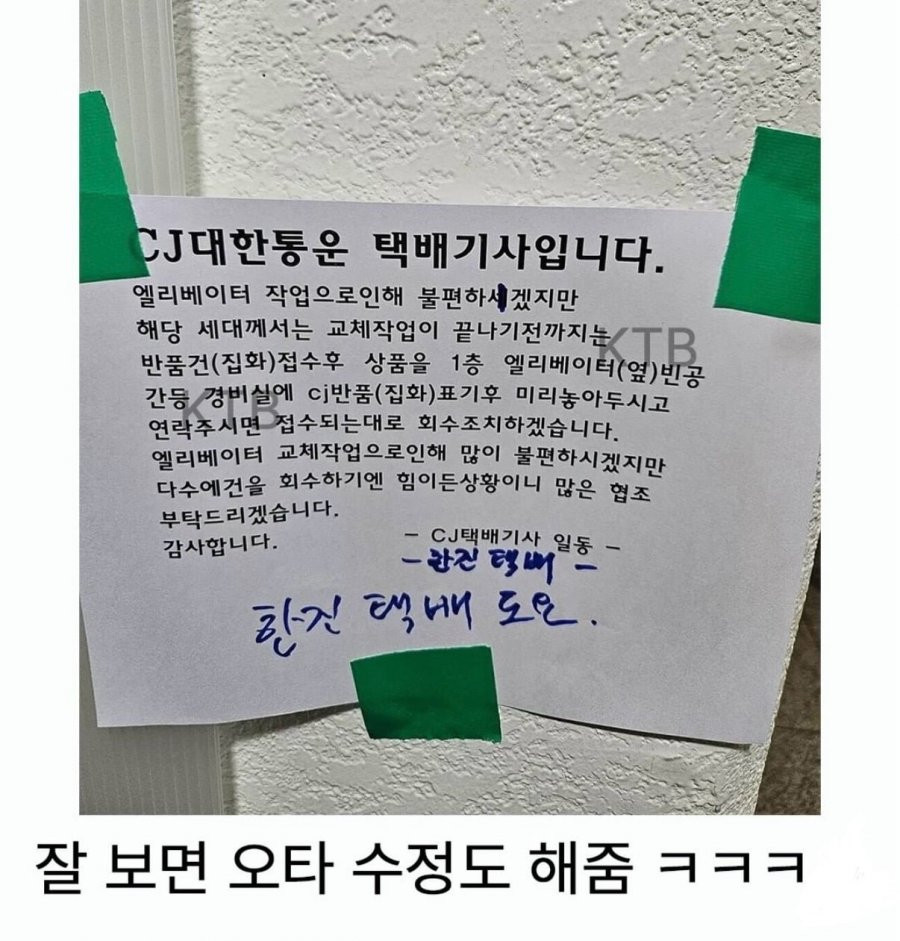 CJ대한통운 택배기사입니다.
엘리베이터 작업으로인해 불편하시겠지만
해당 세대께서는 교체작업이 끝나기전까지는
반품건(집화)접수후 상품을 1층 엘리베이터(옆)빈공
간등 경비실에 cj반품(집화)표기후 미리놓아두시고
연락주시면 접수되는대로 회수조치하겠습니다.
엘리베이터 교체작업으로인해 많이 불편하시겠지만
다수에건을 회수하기엔 힘이든상황이니 많은 협조
부탁드리겠습니다.
감사합니다.
- CJ택배기사 일동 -
- 한진 택배 -
한진 택배 도요.
KTB
KTB
잘 보면 오타 수정도 해줌 ㅋㅋㅋ